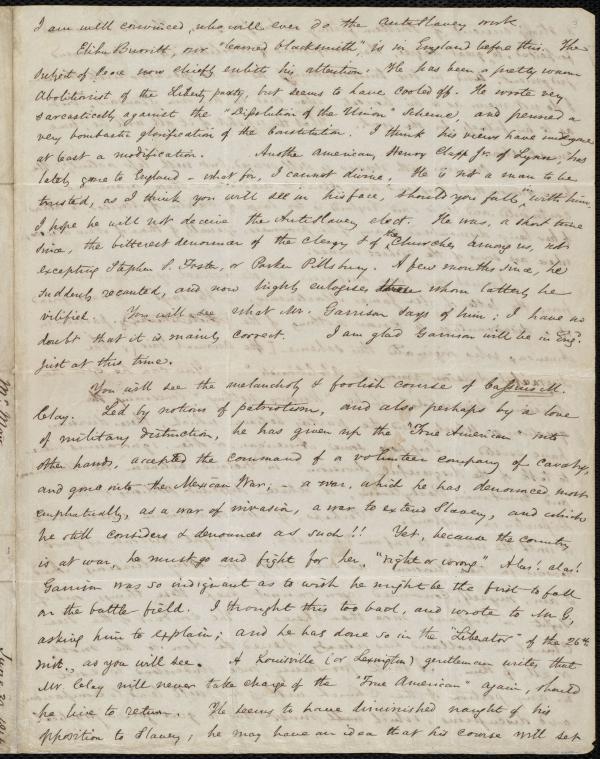 I am well convinced, who will ever do the Anti Slavery work.
Elihu Burritt, our "learned blacksmith", is in England before this. The
subject of Peace now chiefly enlists his attention. He has been a pretty warm
Abolitionist of the Liberty party, but seems to have cooled off. He wrote very
sarcastically against the "Dissolution of the Union" scheme, and penned a
very bombastic glorification of the Constitution. I think his views have undergone
at least a modification. Another American, Henry Clapp Jr. of Lynn, has
lately gone to England - what for, I cannot divine. He is not a man to be
trusted, as I think you will see in his face, should you fall in with him.
I hope he will not deceive the Anti Slavery elect. He was, a short time
since, the bitterest denouncer of the Clergy & of the Churches among us, not
excepting Stephen S. Foster, or Parker Pillsbury. A few months since, he
suddenly recanted, and now highly eulogises whom latterly he
vilified. You will see what Mr. Garrison says of him; I have no
doubt that it is mainly correct. I am glad Garrison will be in Eng.
just at this time.
You will see the melancholy & foolish course of Cassius M.
Clay. Led by notions of patriotism, and also perhaps by a love
of military distinction, he has given up the "True American" into
other hands, accepted the command of a volunteer company of cavalry,
and gone into the Mexican War; - a war, which he has denounced most
emphatically, as a war of invasion, a war to extend Slavery, and which
he still considers & denounces as such!! Yet, because the country
is at war, he must go and fight for her, "right or wrong". Alas! alas!
Garrison was so indignant as to wish he might be the first to fall
on the battle field. I thought this too bad, and wrote to Mr G,
asking him to explain; and he has done so in the "Liberator" of the 26th
inst., as you will see. A Louisville (or Lexington) gentleman writes that
Mr. Clay will never take charge of the "True American" again, should
he live to return. He seems to have diminished naught of his
opposition to Slavery; he may have an idea that his course will set